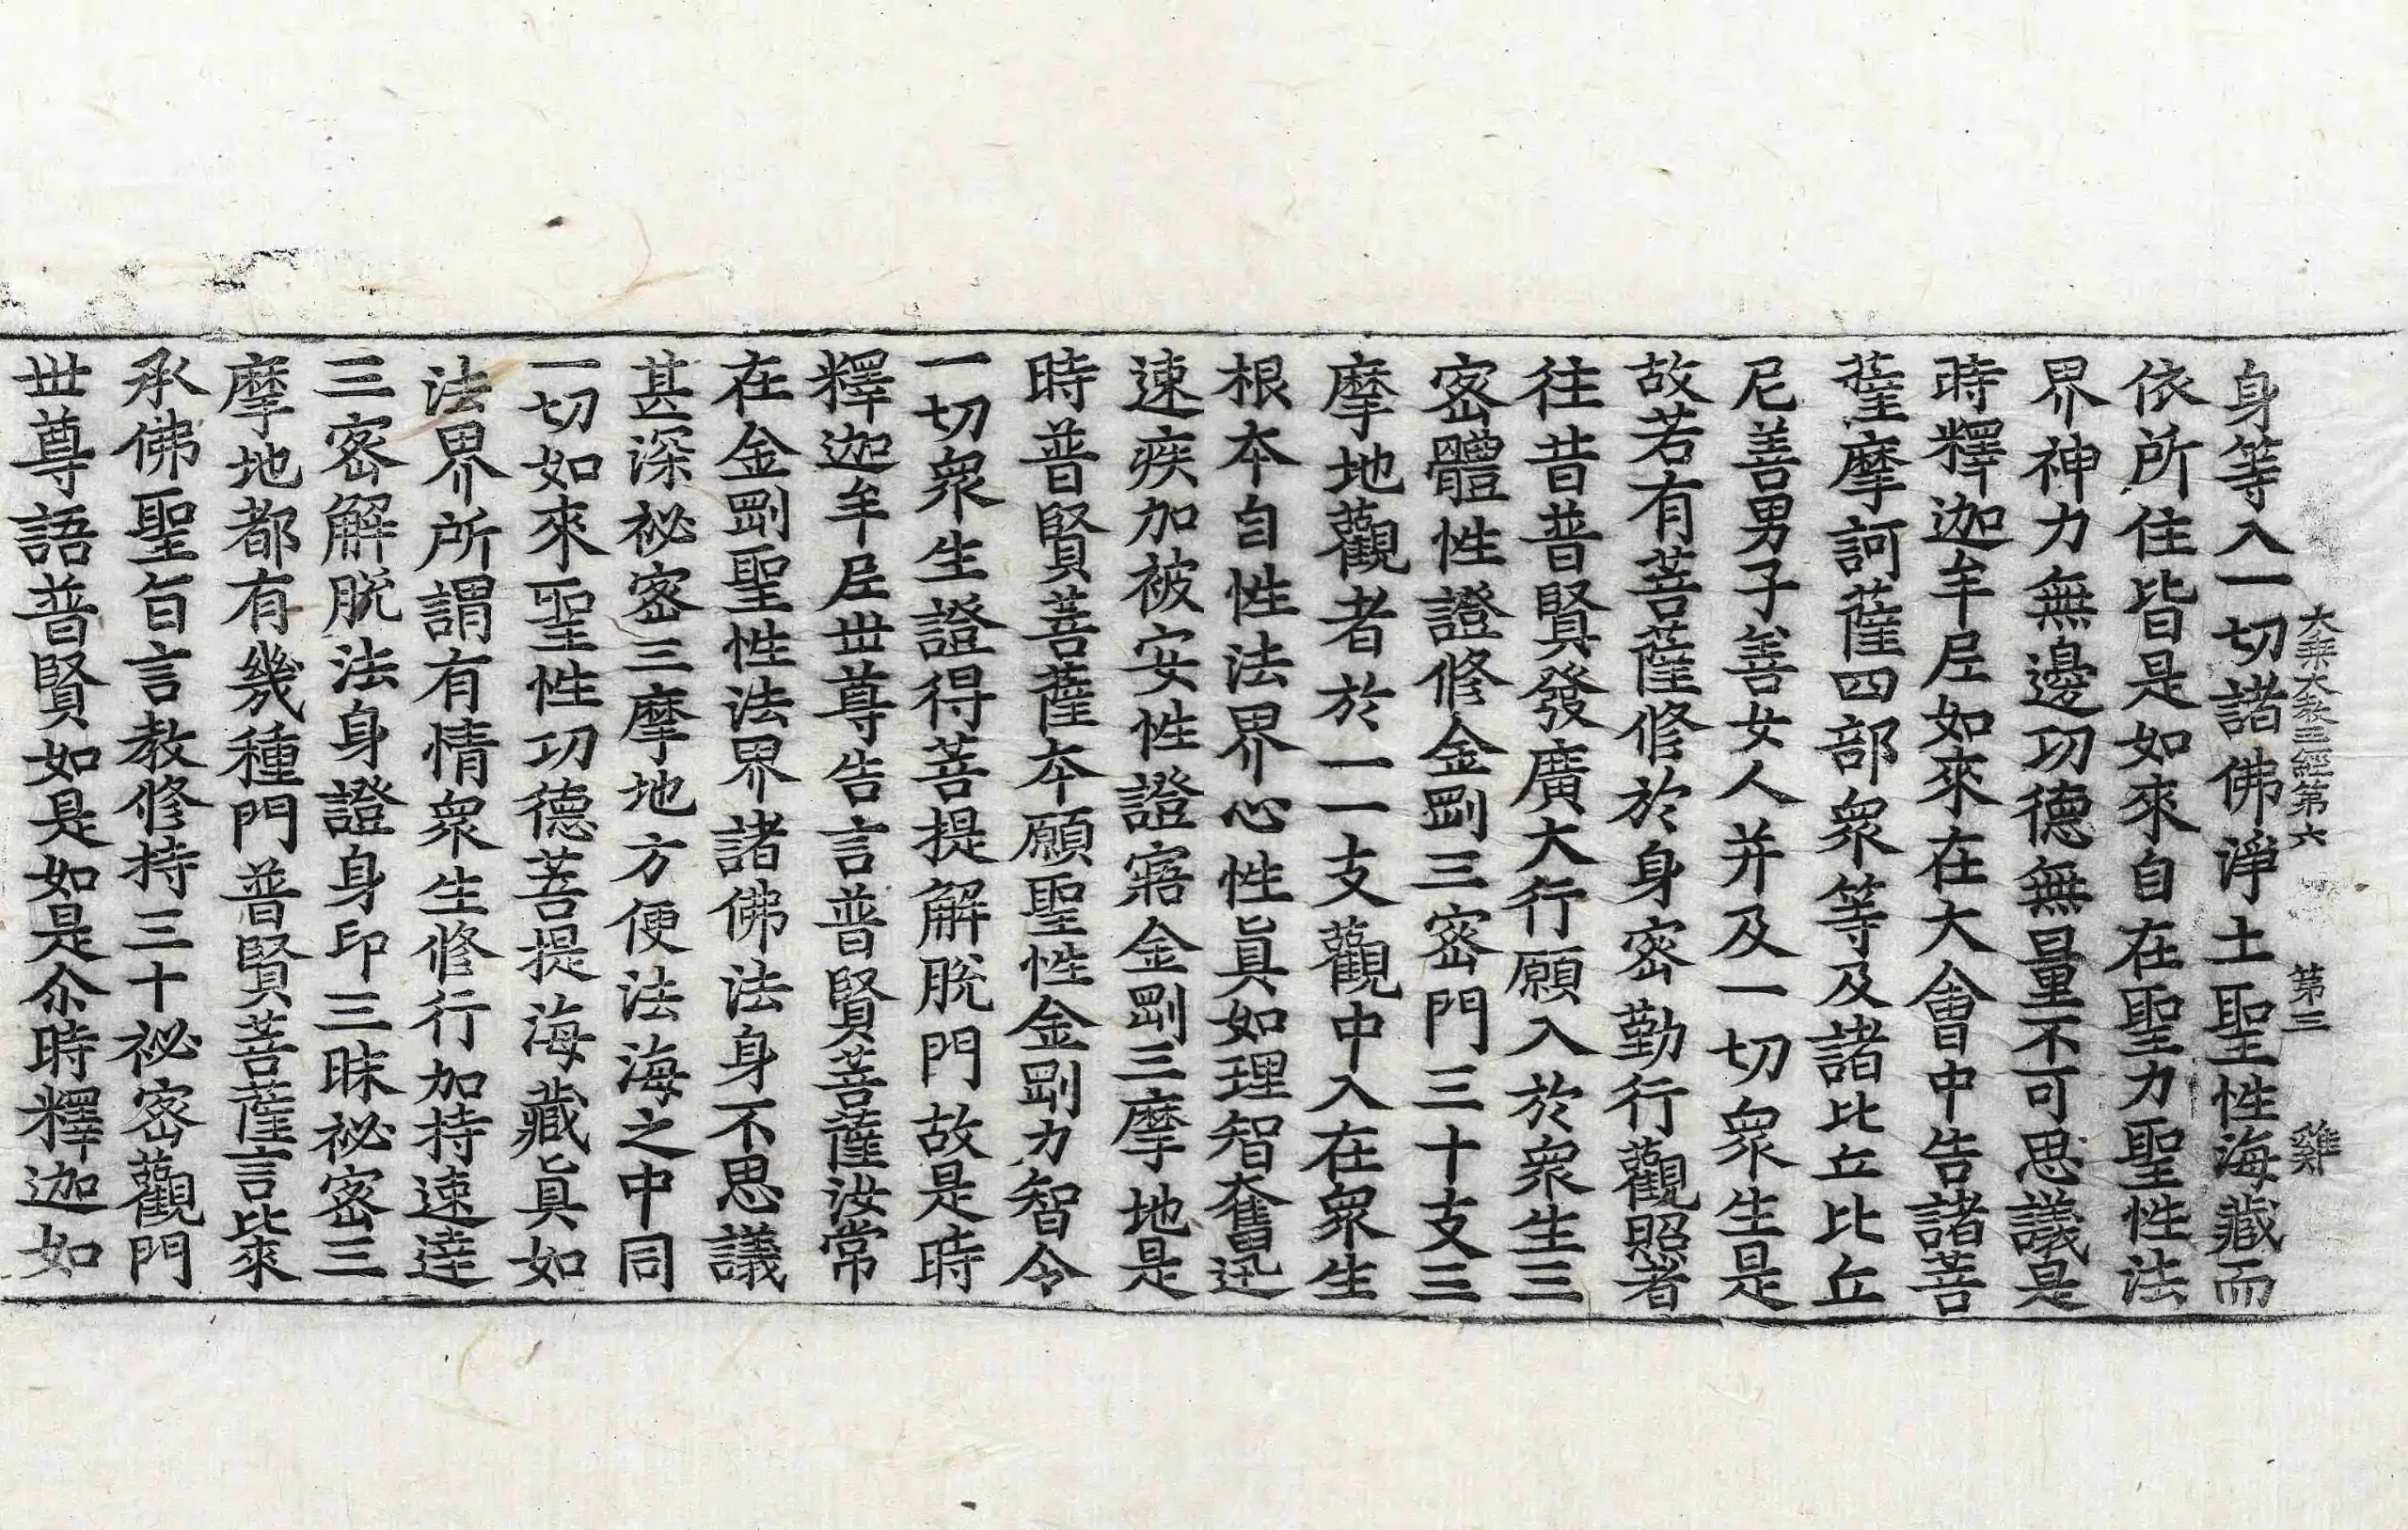 大乘大教王經第六 第三 雞
身等入一切諸佛淨土聖性海藏而
依所住皆是如來自在聖力聖性法
界神力無邊功德無量不可思議是
時釋迦牟尼如來在大會中告諸菩
薩摩訶薩四部衆等及諸比丘比丘
尼善男子善女人并及一切衆生是
故若有菩薩修於身密勤行觀照者
往昔普賢發廣大行願入於衆生三
密體性證修金剛三密門三十支三
摩地觀者於一一支觀中入在衆生
根本自性法界心性眞如理智奮迅
速疾加被安性證寤金剛三摩地是
時普賢菩薩本願聖性金剛力智令
一切衆生證得菩提解脫門故是時
釋迦牟尼世尊告言普賢菩薩汝常
在金剛聖性法界諸佛法身不思議
甚深祕密三摩地方便法海之中同
一切如來聖性功德菩提海藏眞如
法界所謂有情衆生修行加持速達
三密解脫法身證身印三昧祕密三
摩地都有幾種門普賢菩薩言比來
承佛聖旨言教修持三十祕密觀門
世尊語普賢如是如是尒時釋迦如